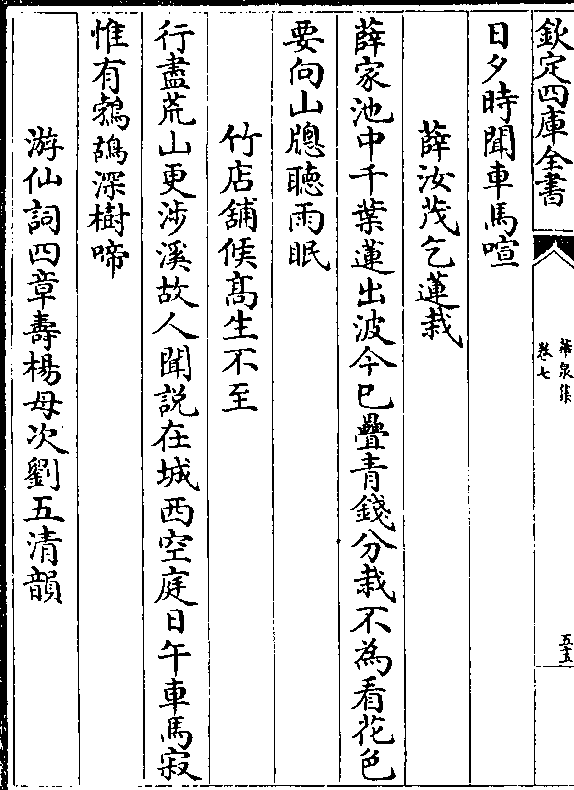 欽定四庫全書
華泉集
卷七
五十五
日夕時聞車馬喧
薛汝茂乞蓮栽
薛家池中千葉蓮出波今已疊青錢分栽不為看花色
要向山牕聽雨眠
竹店舖候髙生不至
行盡荒山更涉溪故人聞説在城西空庭日午車馬寂
惟有鵓鴣深樹啼
游仙詞四章壽楊母次劉五清韻